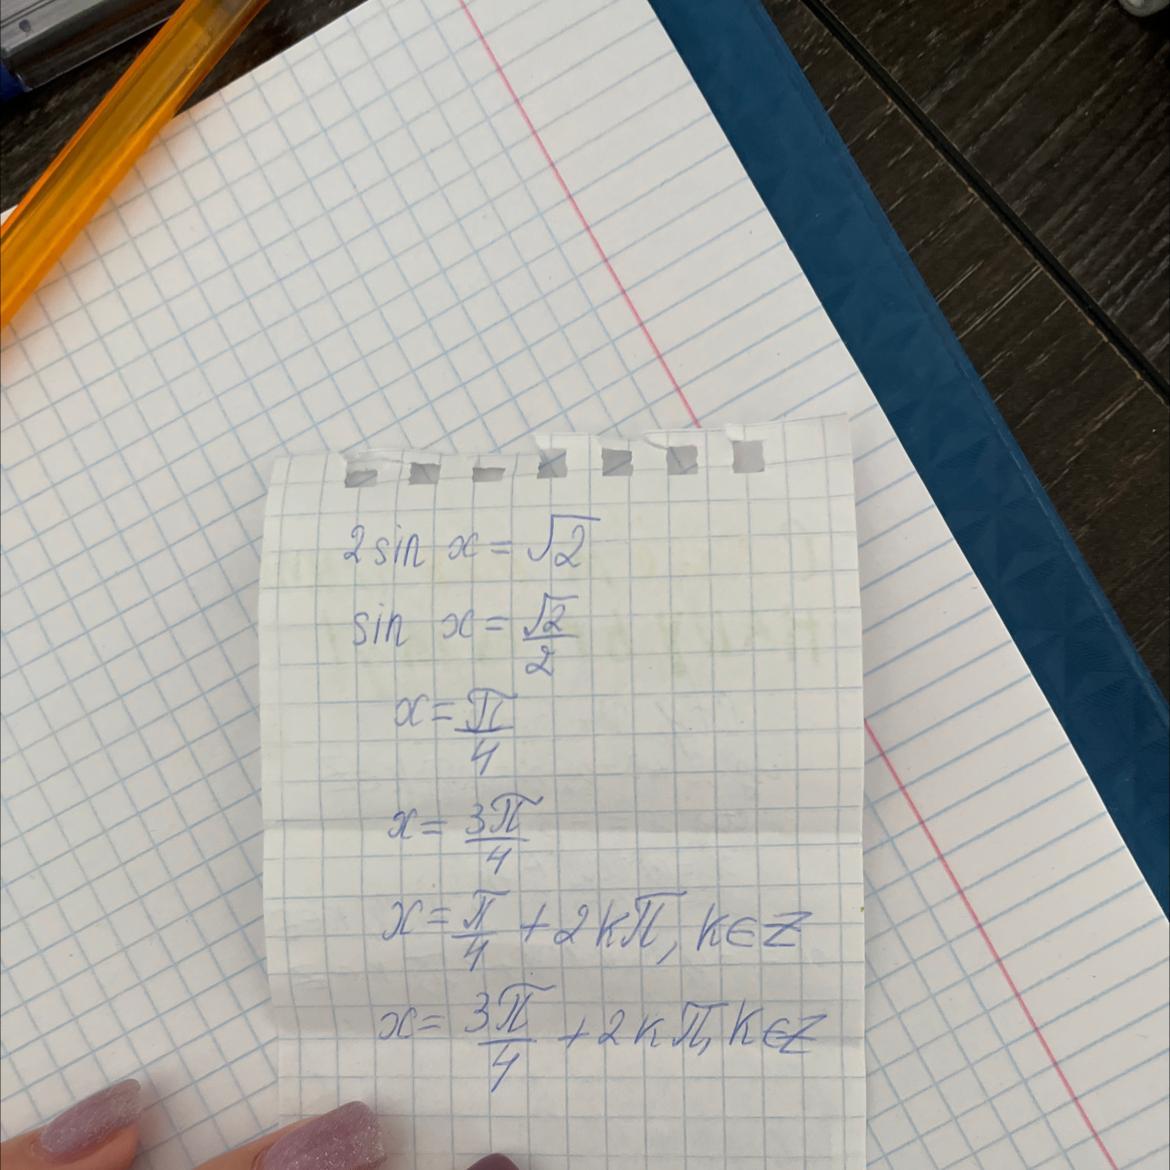 2 sin x = √2
sin x = √2/2
x = π/4
x = 3π/4
x = π/4 + 2kπ, k∈Z
x = 3π/4 + 2kπ, k∈Z